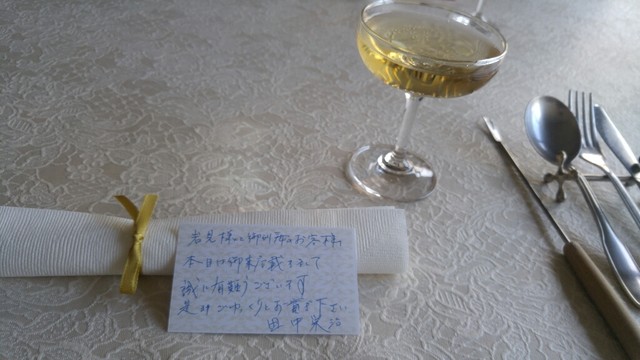 岩見様と御所層のお客様
本日は御来店戴きまして
誠に有難うございます
是非ごゆっくりとお寛ぎ下さい
田中栄治